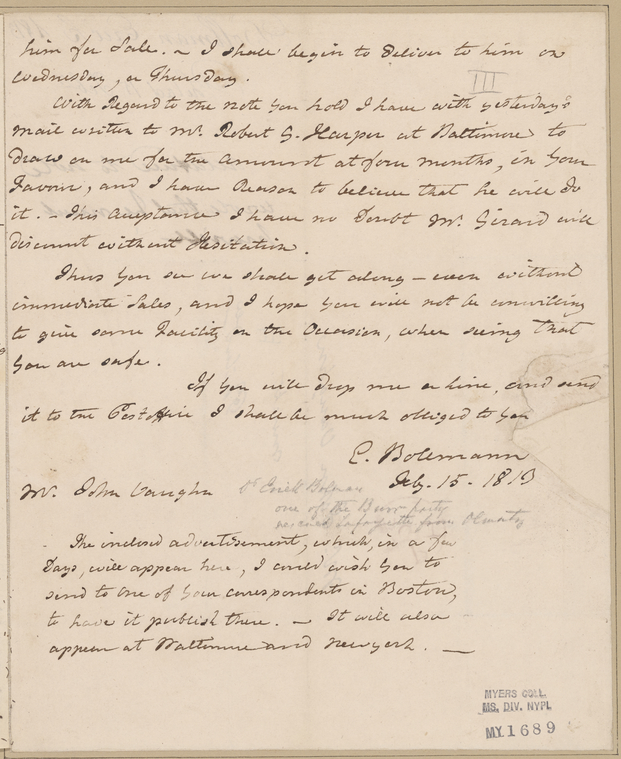 him for Sale. – I shall begin to Deliver to him on
Wednesday, or Thursday.
III
With Regard to the note You hold I have with yesterday's
mail written to Mr. Robert G. Harper at Baltimore to
Draw on me for the amount at four months, in Your
Favour, and I have Reason to believe that he will Do
it. – This acceptance I have no Doubt Mr. Girard will
discount without Hesitation.
Thus You see we shall get along – even without
immediate Sales, and I hope You will not be unwilling
to give some Facility on the Occasion, when seeing that
You are safe.
If You will drop me a line, and send
it to the Postoffice I shall be much obliged to You
E. Bolemann
Feby. 15. 1813
Mr. John Vaughn
Dr Erick Bolman
one of the Burr party
rescued Lafayette from Olmutz
The inclosed advertisement, which, in a few
Days, will appear here, I could wish You to
send to one of Your correspondents in Boston,
to have it publish there. – It will also
appear at Baltimore and Newyork. –
MYERS COLL.
MS. DIV. NYPL
MY. 1689